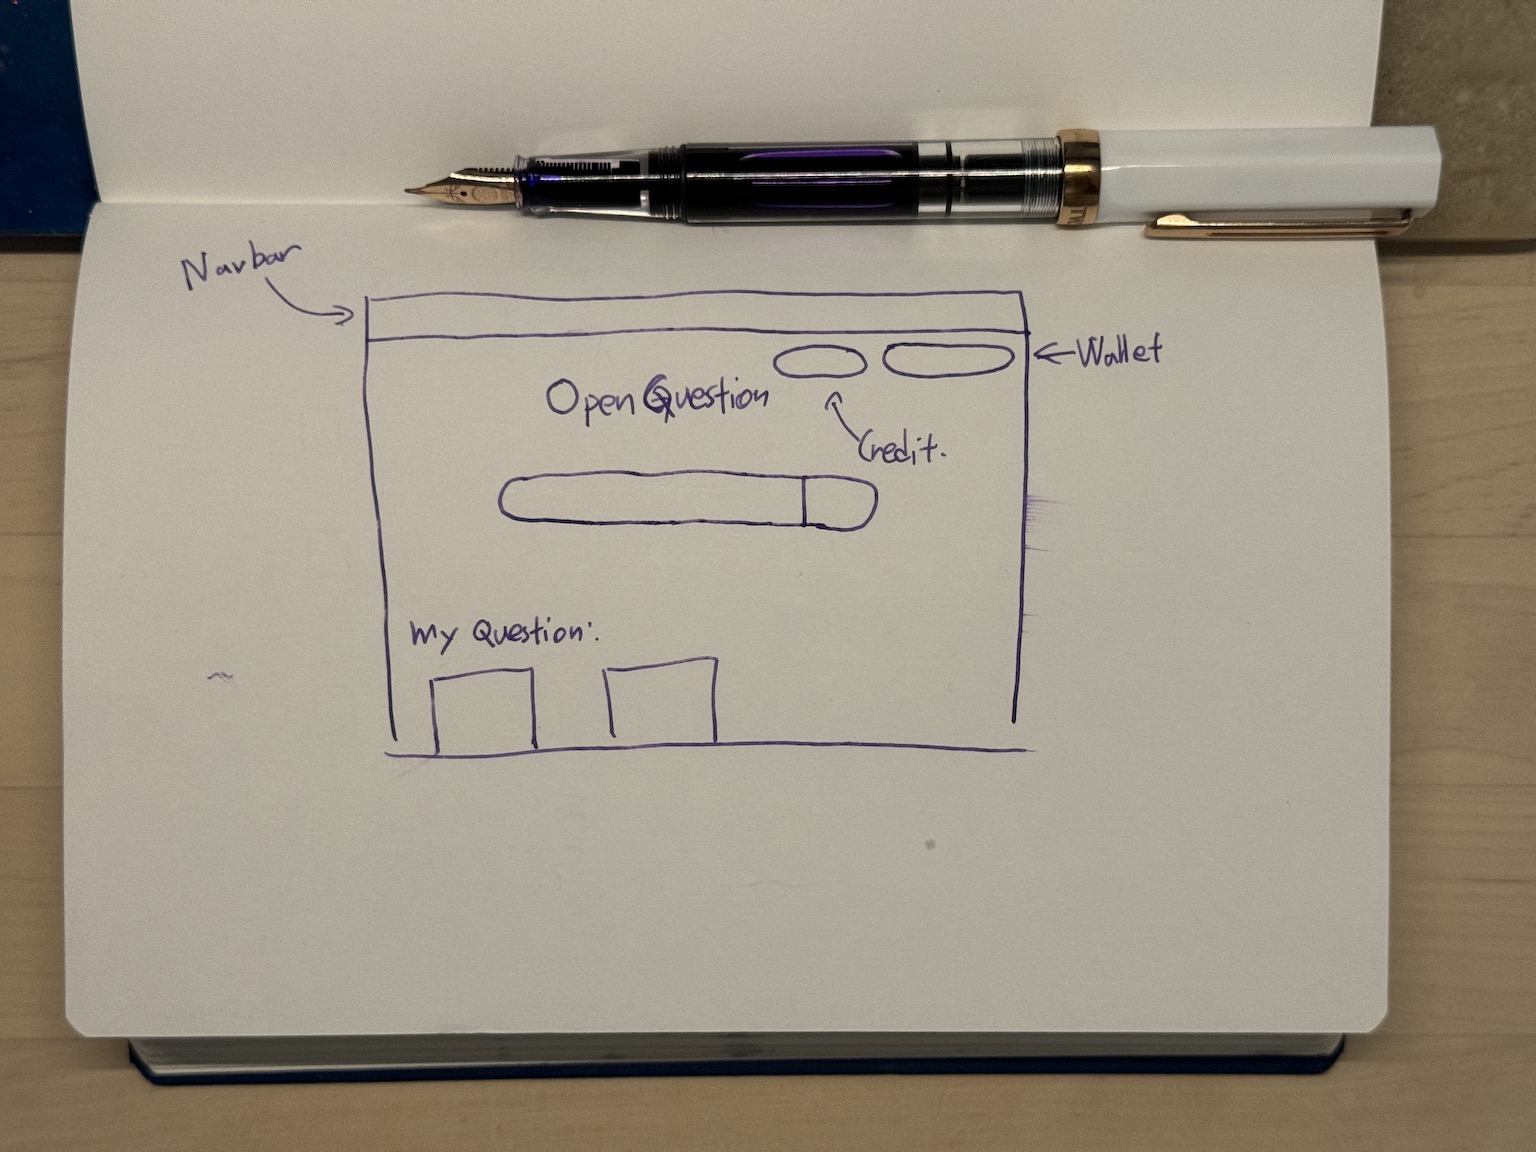 Navbar
Wallet
Open Question
Credit.
My Question: